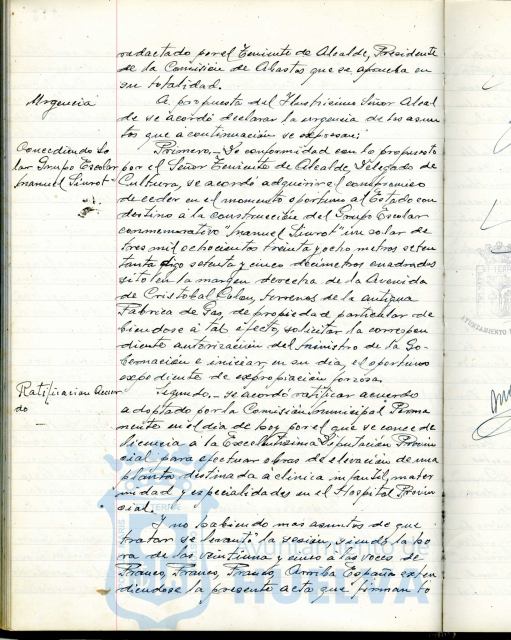 radactado por el Teniente de Alcalde, Presidente
de la Comisión de Abastos que se aprueba en
su totalidad.
Urgencia
A propuesta del Ilustrísimo Señor Alcal
de se acordó declarar la urgencia de los asun
tos que a continuación se expresan:
Concediendo So
lar Grupo Escolar
Manuel Siurot
Primero.- De conformidad con lo propuesto
por el Señor Teniente de Alcalde, Delegado de
Cultura, se acordó adquirir el compromiso
de ceder en el momento oportuno al Estado con
destino a la construcción del Grupo Escolar
conmemorativo "Manuel Siurot" un solar de
tres mil ochocientos treinta y ocho metros seten
tanta digo setenta y cinco decímetros cuadrados
sito en la margen derecha de la Avenida
de Cristobal Colon, terrenos de la antigua
Fabrica de Gas, de propiedad particular de
biendose a tal efecto, solicitar la correspon
diente autorización del Ministro de la Go-
bernación e iniciar, en su dia, el oportuno
expediente de expropiación forzosa.
Ratificacion Acuer
do
Segundo.- se acordó ratificar acuerdo
adoptado por la Comisión Municipal Perma
nente en el dia de hoy por el que se concede
licencia a la Excelentísima Diputación Provin
cial para efectuar obras de elevación de una
planta destinada a clínica infantil, mater
nidad y especialidades en el Hospital Provin
cial.
Y no habiendo mas asuntos de que
tratar se levantó la sesión, siendo la ho
ra de las veintiuna y cinco a las voces de
Franco, Franco, Franco, Arriba España exten
diendose la presente acta que firman to
HUELVA